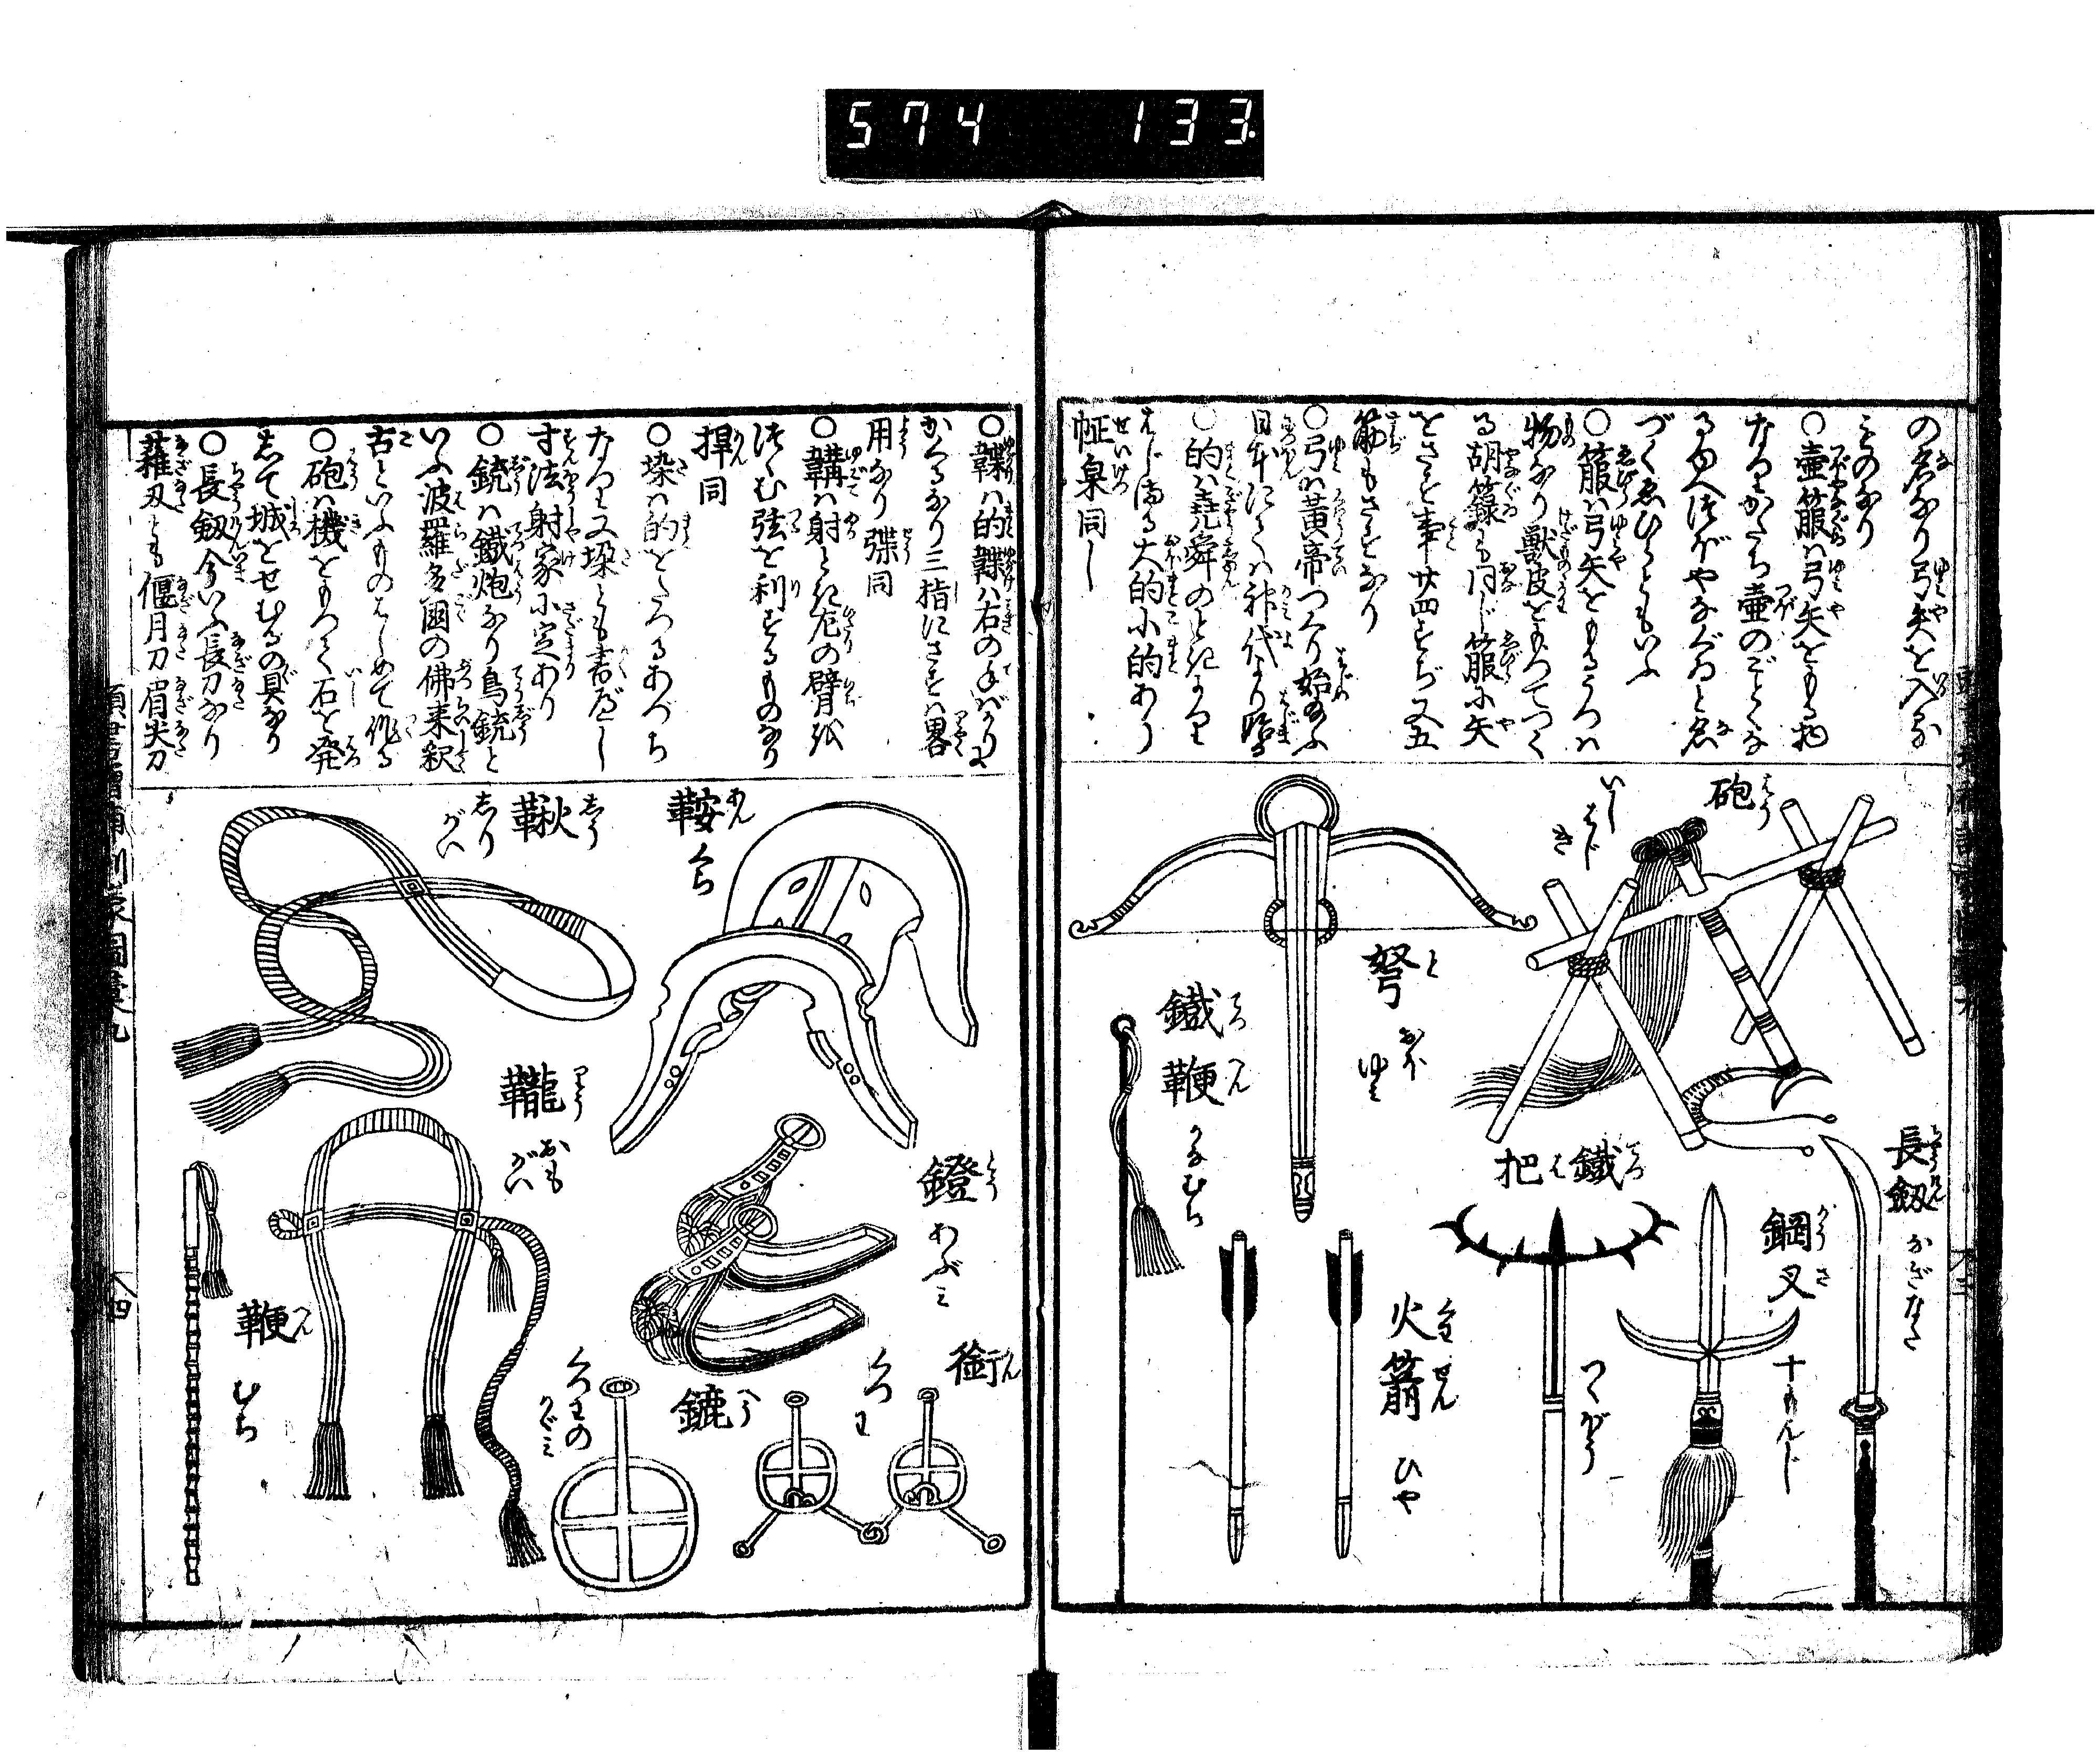 574 133.
の名なり弓矢を入るる
ものなり
〇壷箙ハ弓矢をもる物
なりかたち壷のごとくな
るゆへにつぼやなぐゐと名
づくゑびらともいふ
〇箙ハ弓矢をもるうつハ
物なり獣皮をもつてつく
る胡籙も同じ箙に矢
をさす事廿四すぢ又五
筋もさすなり
〇弓ハ黄帝つくり始給ふ
日本にてハ神代より始る
〇的ハ堯舜のときより
はじまる大的小的あり
帳臬同し
砲 はう
いしはじき
弩 ど
おほゆみ
鐵鞭 てつへん
かなむち
長釼
なぎなた
鋼叉 かうさ
十もんじ
鐵把 てつは
つくぼう
火箭 くわせん
ひや
〇韘ハ的韘ハ右の手ばかりに
かくるなり三指にさすハ畧
用なり弽同
〇韝ハ射るとき左の臂を
つつむ弦を利するものなり
捍同
〇垜ハ的をたつるあづち
なり又垛とも書べし
寸法射家に定あり
〇銃ハ鐵炮なり鳥銃と
いふ波羅多国の佛来釈
古といふものはじめて作る
〇砲ハ機をもつて石を発
して城をせむるの具なり
〇長釼今いふ長刀なり
薙刀とも偃月刀眉尖刀
鞍 あん
くら
鞦 しう
しりがい
鐙 とう
あぶみ
鞭 へん
むち
銜
くつわ
鑣 へう
くつわのかがみ
韁 
おもがい
頭書増補訓蒙圖彙九